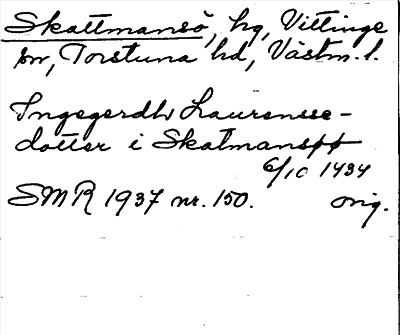 Skattmansö, hg, Vittinge
sn, Torstuna hd, Västm. l.
Ingegerdh Laurensse-
dotter i Skatmansøø
6/10 1434
SMR 1937 nr. 150. orig.